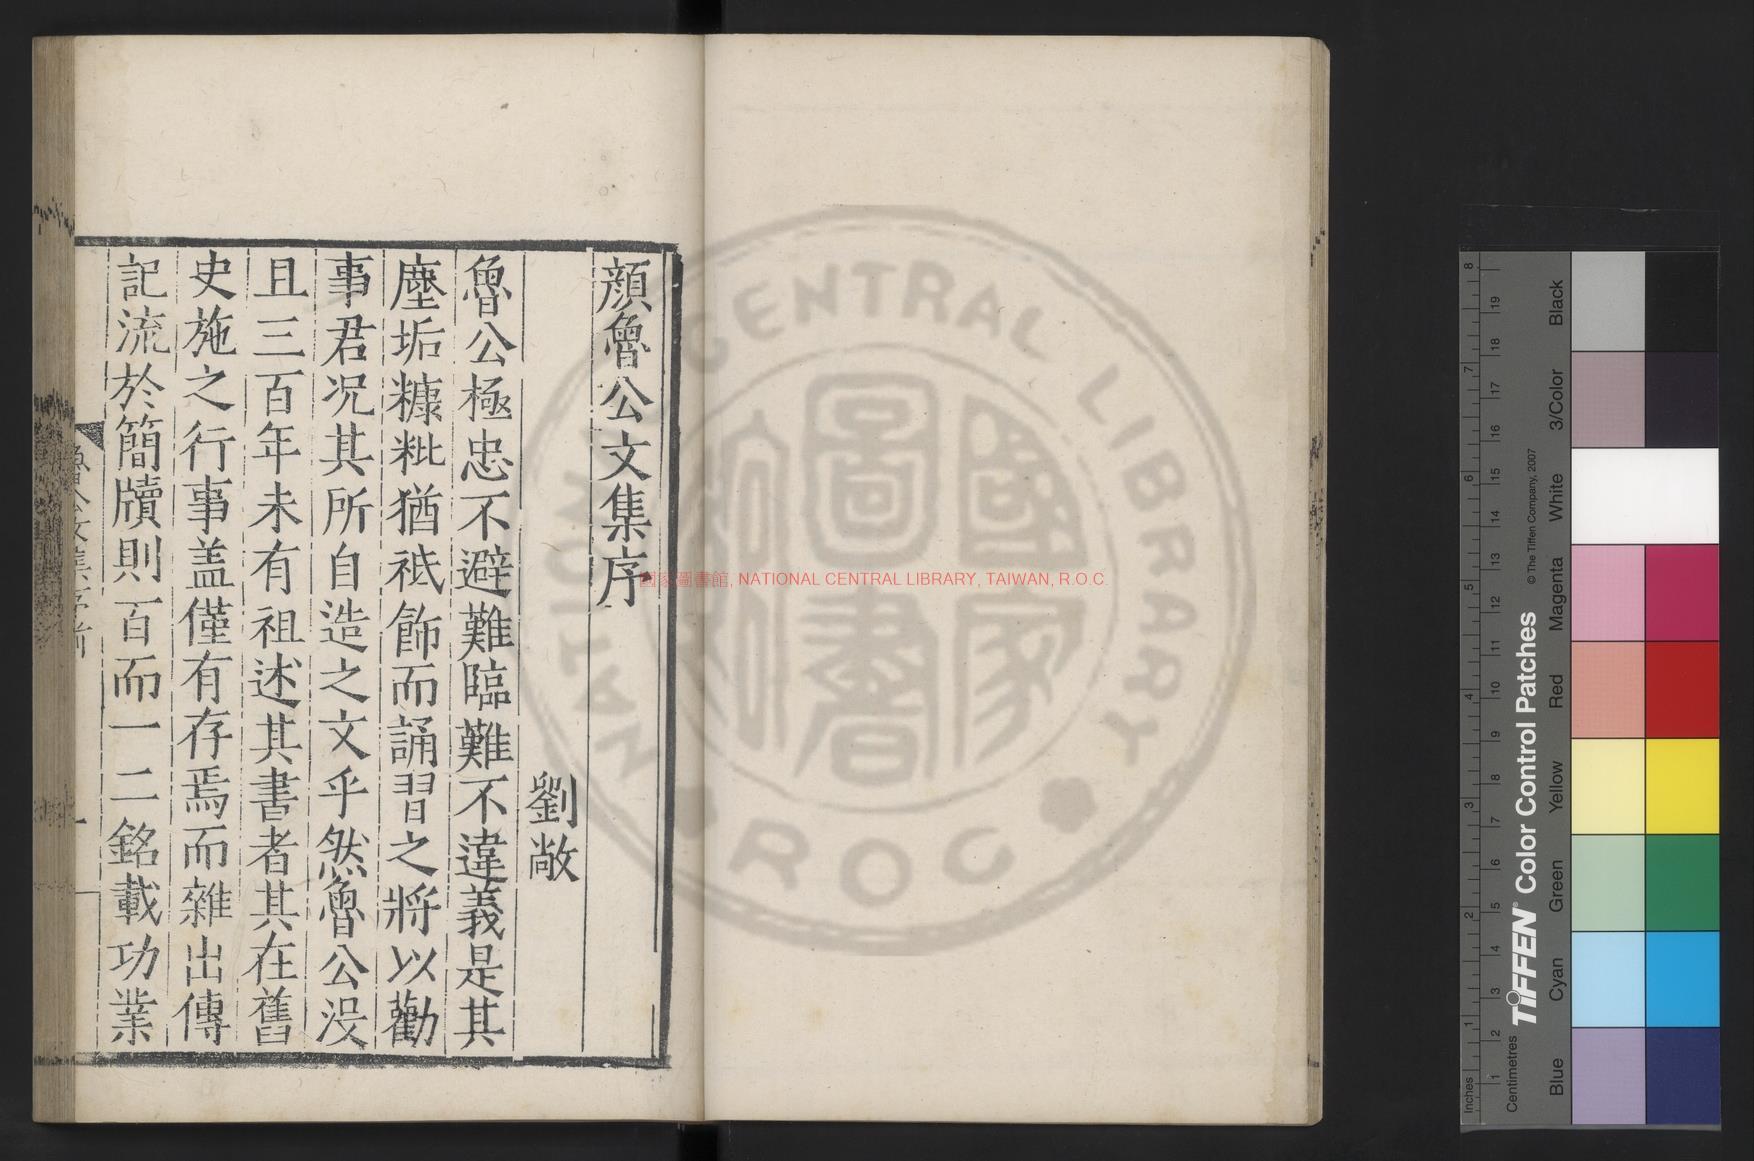 顔魯公文集序
劉敞
魯公極忠不避難臨難不違義是其
塵垢糠粃猶祗飾而誦習之將以勸
事君况其所自造之文乎然魯公没
且三百年未有祖述其書者其在舊
史施之行事盖僅有存焉而雜出傳
記流於簡牘則百而一二銘載功業
國家圖書館, NATIONAL CENTRAL LIBRARY, TAIWAN, R.O.C.
NATIONAL CENTRAL LIBRARY
ROC
國家圖書
TIFFEN® Color Control Patches
© The Tiffen Company, 2007
Inches 1 2 3 4 5 6 7 8
Centimetres 1 2 3 4 5 6 7 8 9 10 11 12 13 14 15 16 17 18 19
Blue Cyan Green Yellow Red Magenta White 3/Color Black